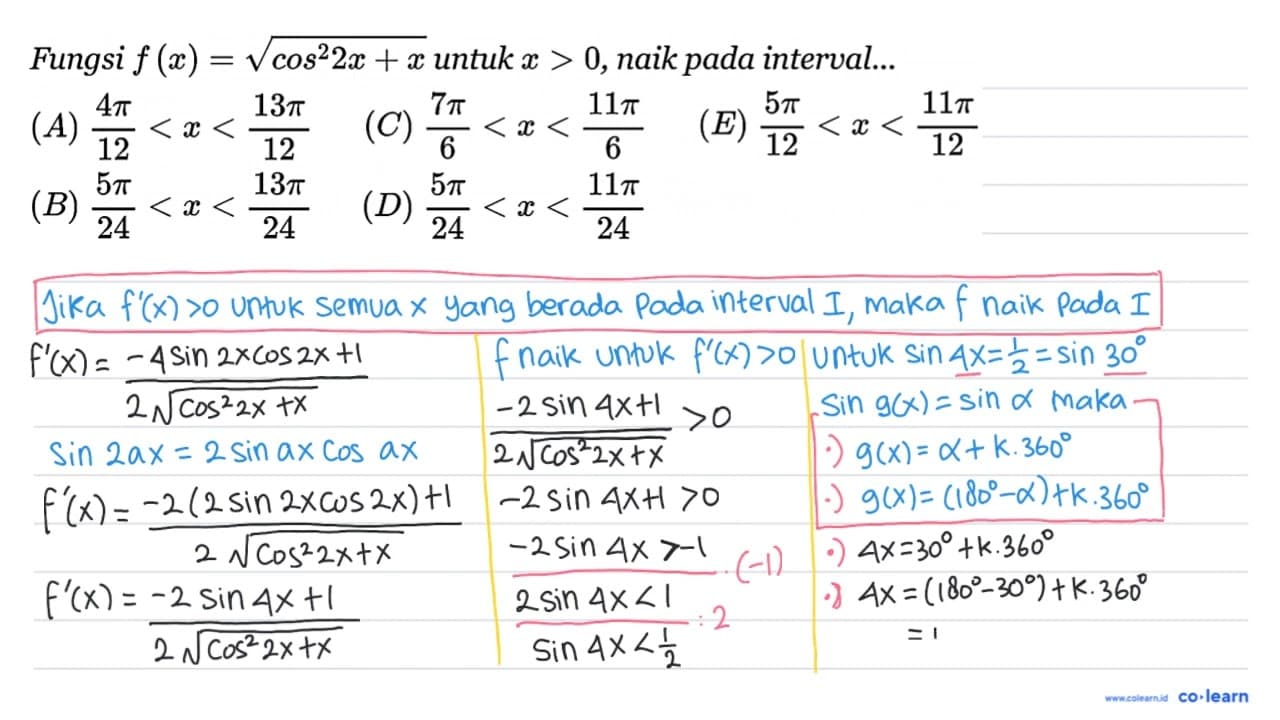 Fungsi f (x) = √cos²2x + x untuk x > 0, naik pada interval...
(A) 4π/12 < x < 13π/12 (C) 7π/6 < x < 11π/6 (E) 5π/12 < x < 11π/12
(B) 5π/24 < x < 13π/24 (D) 5π/24 < x < 11π/24
Jika f'(x) >0 untuk semua x yang berada pada interval I, maka f naik pada I
f'(x) = -4 sin 2x cos 2x +1 / 2√cos² 2x +x
sin 2ax = 2 sin ax cos ax
f'(x) = -2 (2 sin 2x cos 2x) +1 / 2 √cos² 2x+x
f'(x) = -2 sin 4x +1 / 2 √cos² 2x+x
f naik untuk f'(x) >0
-2 sin 4x+1 / 2√cos² 2x+x >0
-2 sin 4x+1 >0
-2 sin 4x >-1
. (-1)
2 sin 4x <1
: 2
sin 4x < 1/2
untuk sin 4x = 1/2 = sin 30°
sin g(x) = sin α maka
·) g(x) = α + k.360°
·) g(x) = (180°-α)+k.360°
·) 4x = 30° +k.360°
·) 4x = (180°-30°)+k.360°
= 1
www.colearn.id co·learn